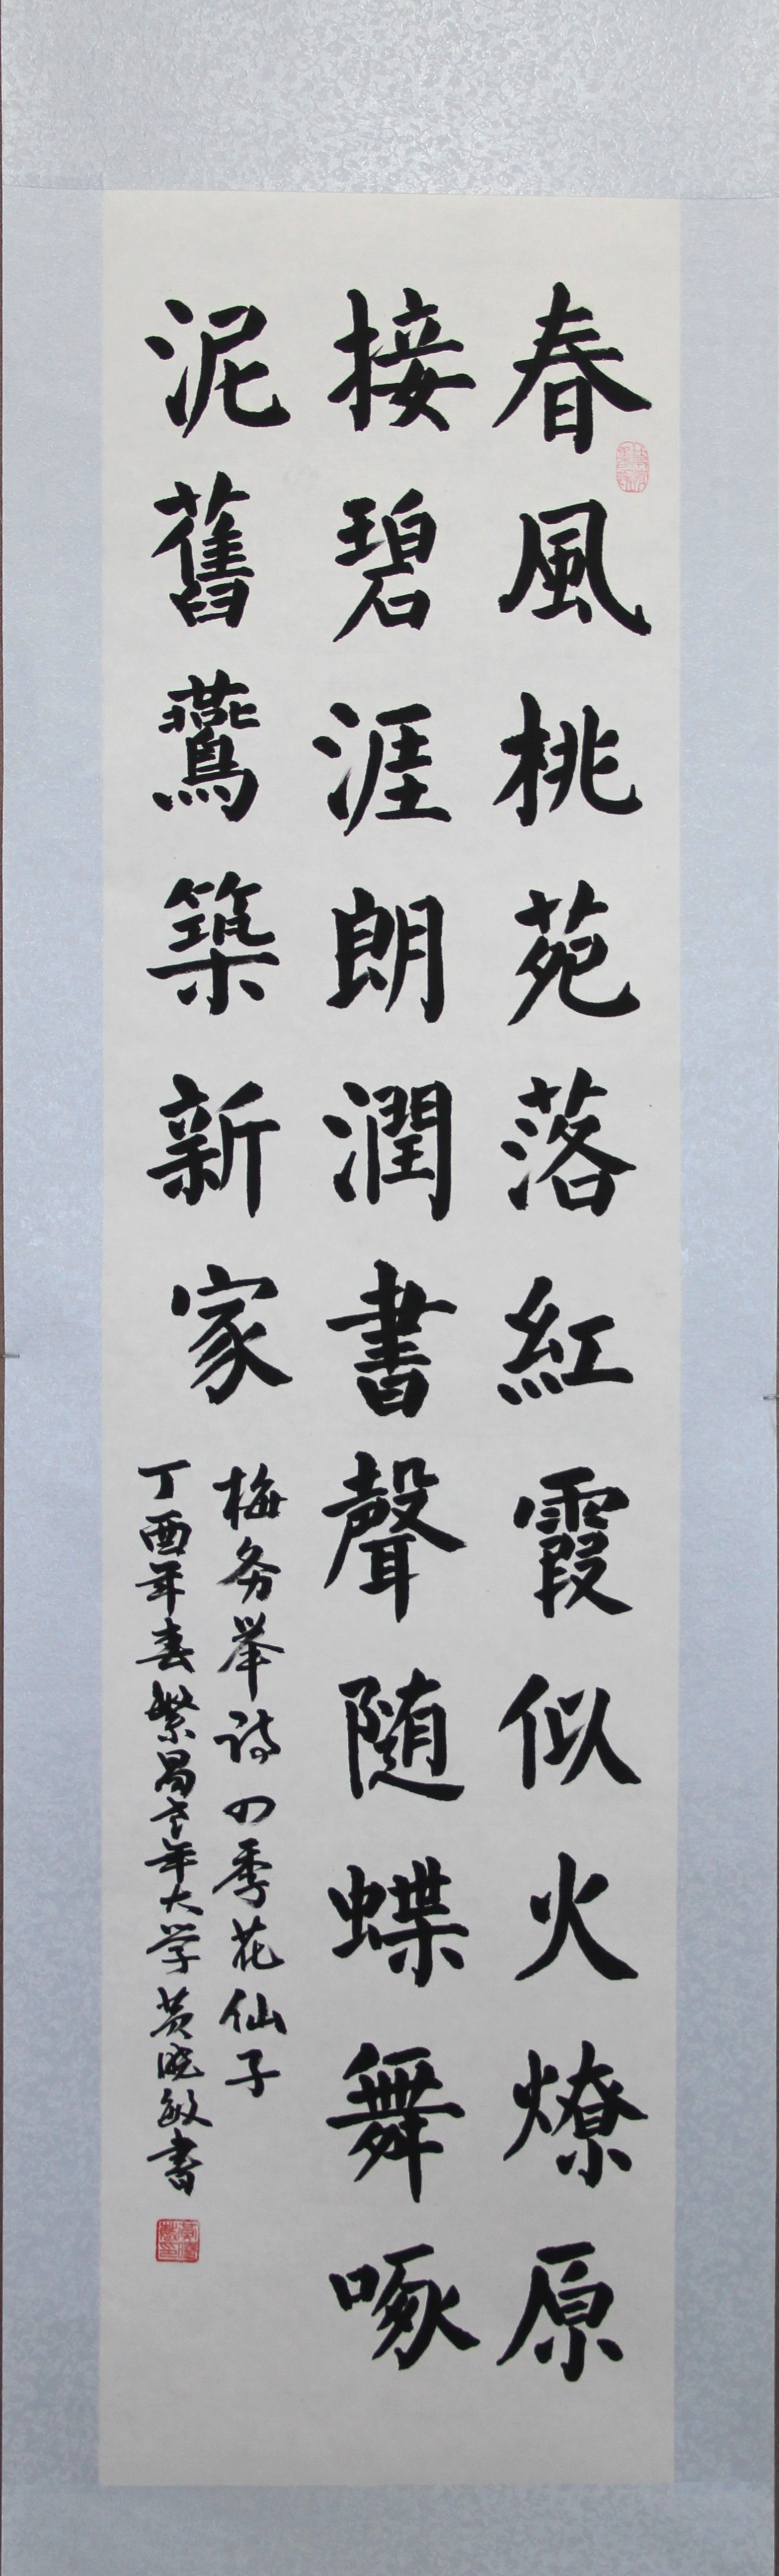 春風桃苑落紅霞似火燎原
接碧涯朗潤書聲随蝶舞啄
泥舊鷰築新家
梅务举诗四季花仙子
丁酉年春繁昌老年大学黄晓敏書